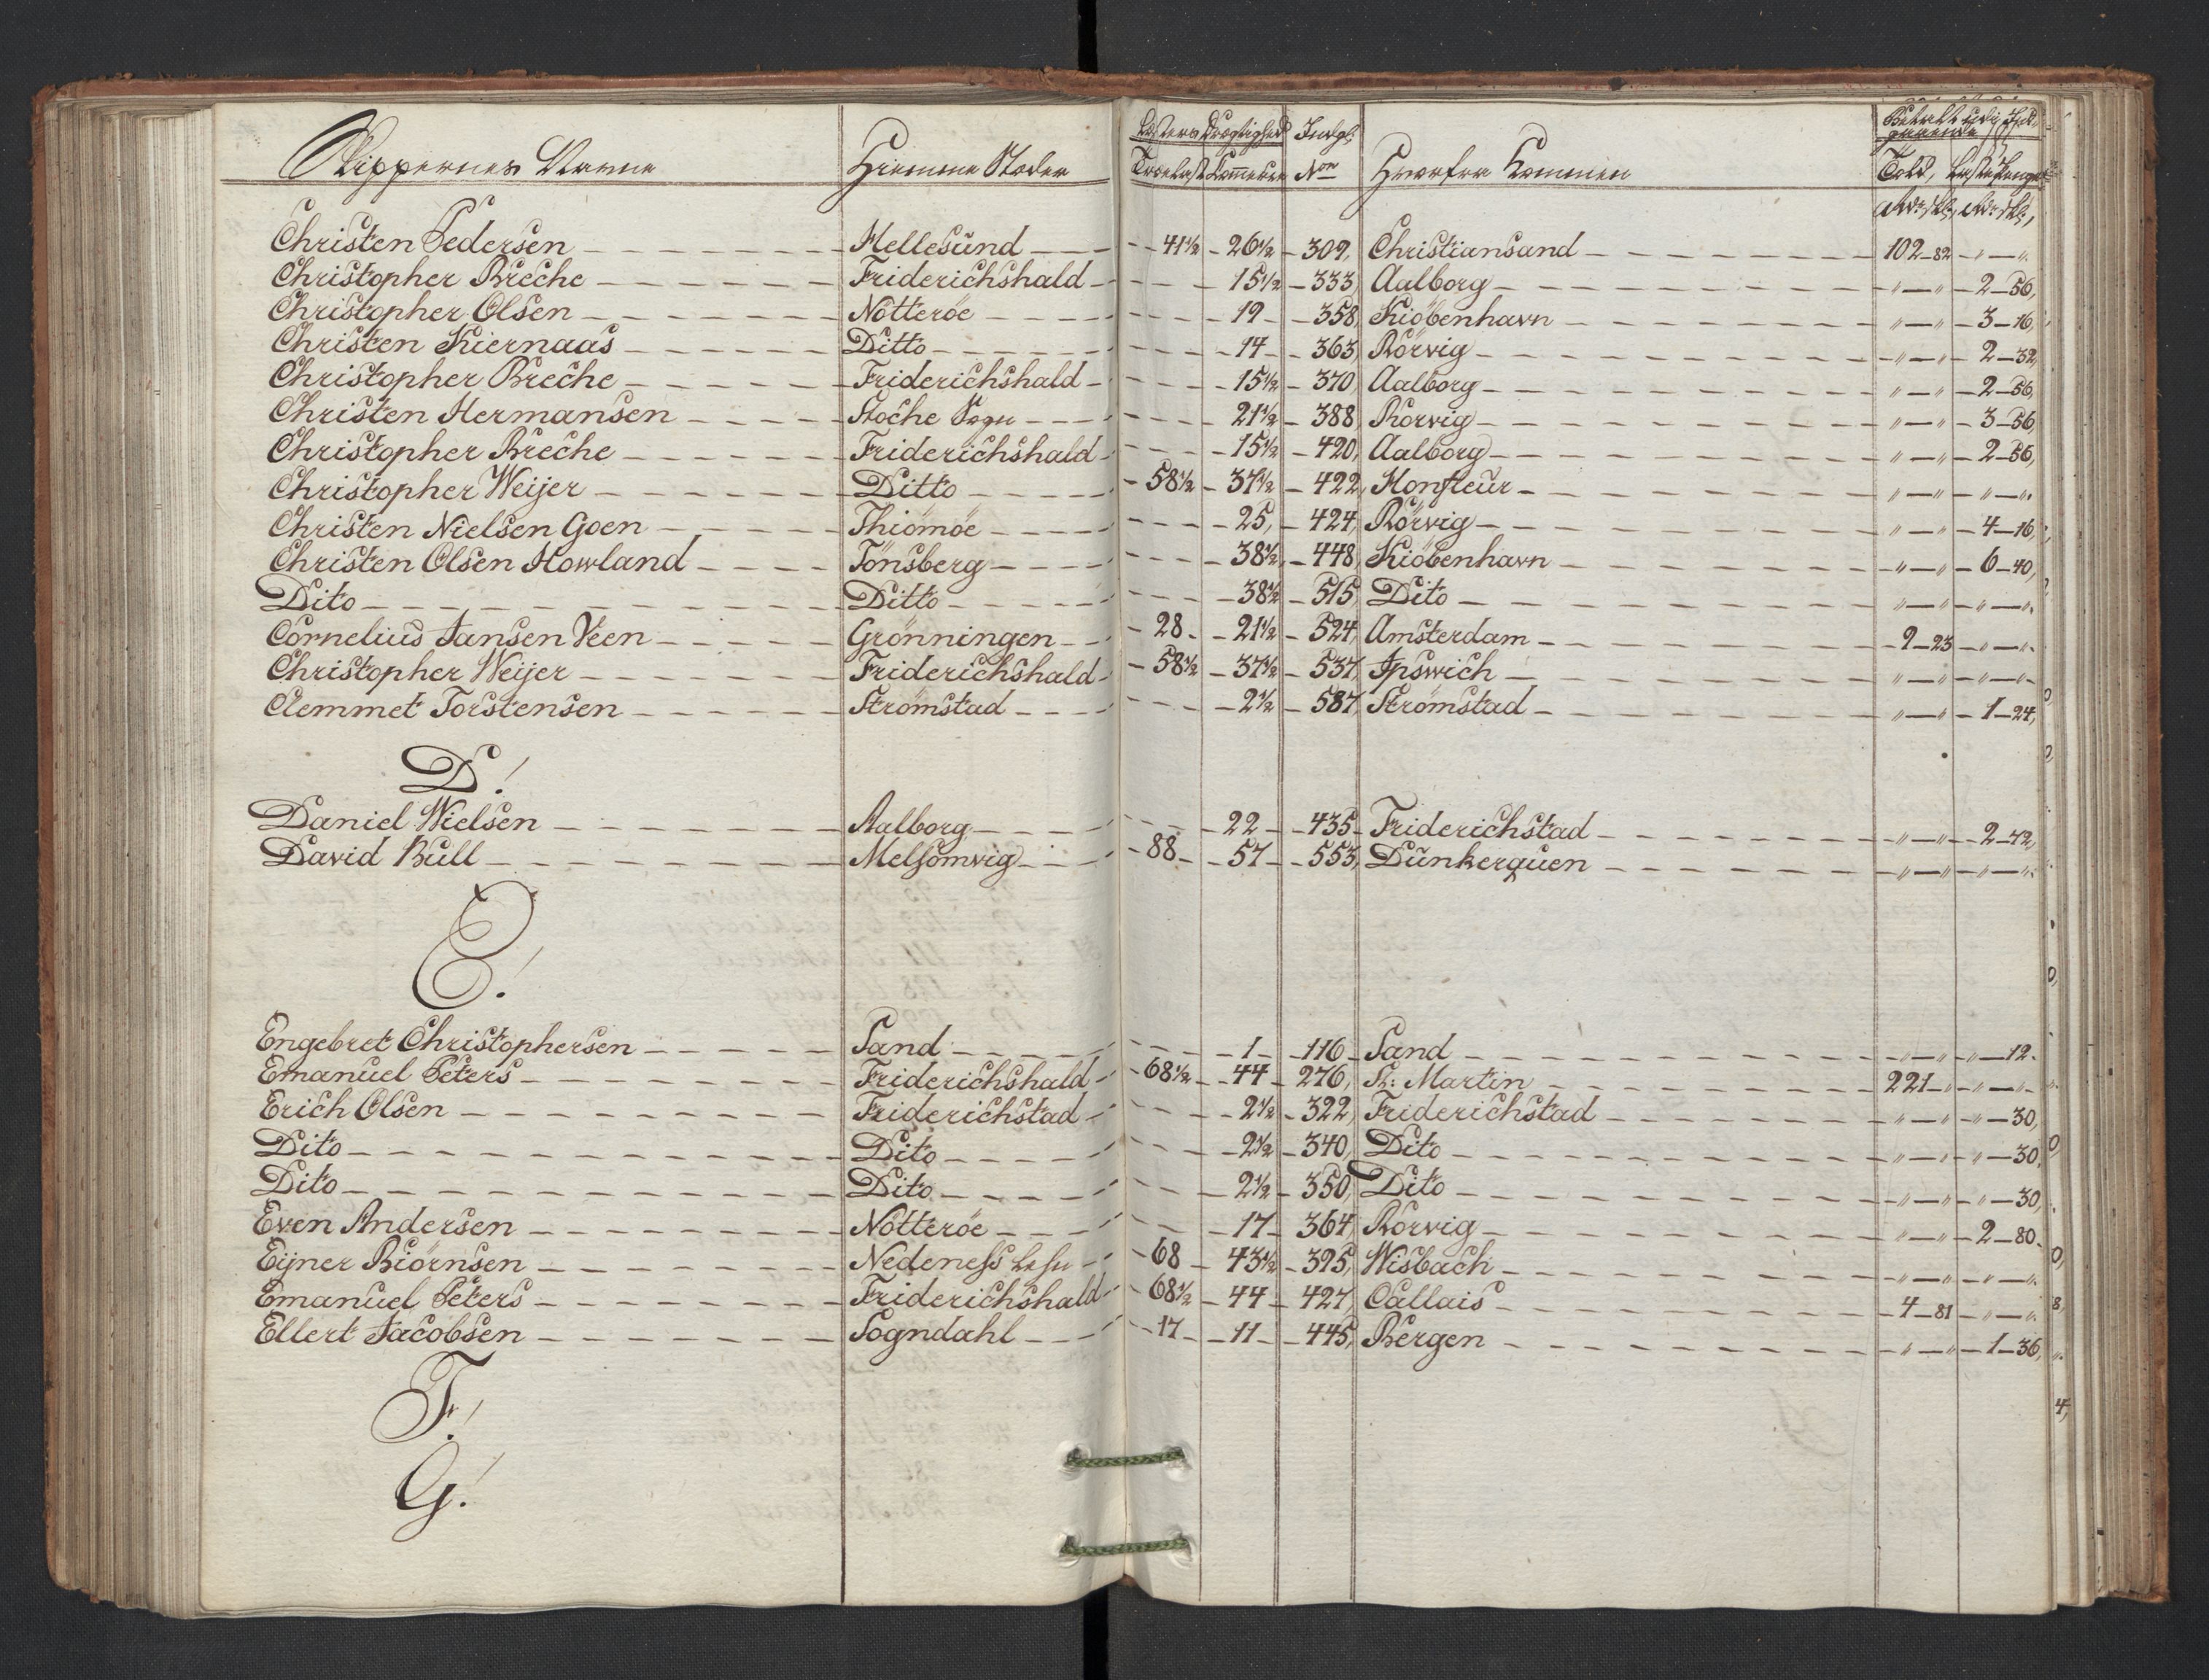 Skippernes Navne Hiemme Steder Læsters Drægtighed Indg: Hvorfra Kommen Betalt udi
Trælast Com̄erce No Told, Læste Penge
Rdr: skl:, Rdr: skl:,
Christen Pedersen Hellesund 41½ 26½ 309, Christiansand 102 82 " "
Christopher Breche Friderichshald 15½ 333, Aalborg " " 2 56,
Christopher Olsen Nötteröe 19 358, Kiöbenhavn " " 3 16,
Christen Kiernaas Ditto 14 363, Rörvig " " 2 32,
Christopher Breche Friderichshald 15½ 370, Aalborg " " 2 56,
Christen Hermansen Stoche Sogn 21½ 388, Rörvig " " 3 56,
Christopher Breche Friderichshald 15½ 420, Aalborg " " 2 56,
Christopher Weijer Ditto 58½ 37½ 422, Honfleur " " " "
Christen Nielsen Goen Thiömöe 25, 424, Rörvig " " 4 16,
Christen Olsen Howland Tönsberg 38½ 448, Kiöbenhavn " " 6 40,
Dito Ditto 38½ 515, Dito " " " "
Cornelius Jansen Veen Grönningen 28 21½ 524, Amsterdam 9 23 " "
Christopher Weijer Friderichshald 58½ 37½ 537, Ipswich " " " "
Clemmet Torstensen Strömstad 2½ 587, Strömstad " " 1 24,
D!
Daniel Nielsen Aalborg 22 435 Friderichstad " " 2 42,
David Bull Melsomvig 88 57 553, Dünkerquen " " " "
E!
Engebret Christophersen Sand 1 116 Sand " " " 12
Emanuel Peters Friderichshald 68½ 44 276, St: Martin 221 " " "
Erich Olsen Friderichstad 2½ 322, Friderichstad " " " 30,
Dito Dito 2½ 340, Dito " " " 30,
Dito Dito 2½ 350, Dito " " " 30,
Even Andersen Nötteröe 17 364, Rörvig " " 2 80
Eijner Biörnsen Nedeness 68 43½ 395, Wisbach " " " "
Emanuel Peters Friderichshald 68½ 44 427, Callais 4 81 " "
Ellert Jacobsen Sogndahl 17 11 445, Bergen " " 1 36,
F!
G!